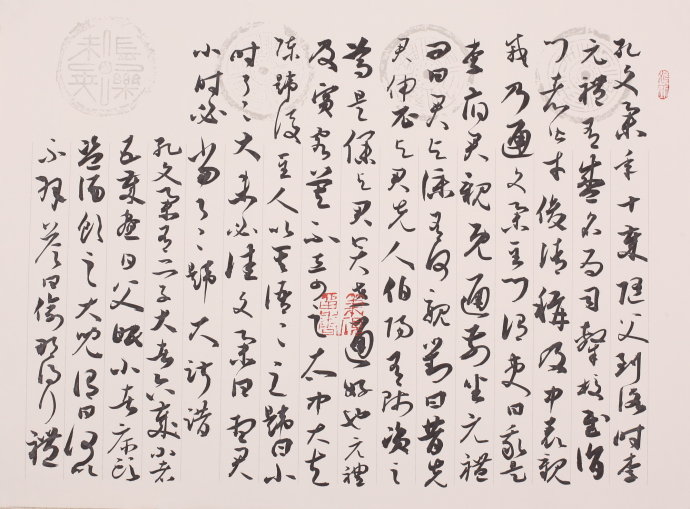 孔文舉年十歲隨父到洛時李
元禮有盛名為司隸校尉詣
門者皆才俊清稱及中表親
戚乃通文舉至門謂吏曰我是
李府君親既通前坐元禮
問曰君与僕有何親對曰昔先
君仲尼与君先人伯陽有師資之
尊是僕与君奕世通好也元禮
及賓客莫不奇之太中大夫
陳韙後至人以其語語之韙曰小
時了了大未必佳文舉曰想君
小時必當了了韙大踧踖
孔文舉有二子大者六歲小者
五歲晝日父眠小者床頭
盜酒飲之大兒謂曰何以
不拜答曰偷那得行禮